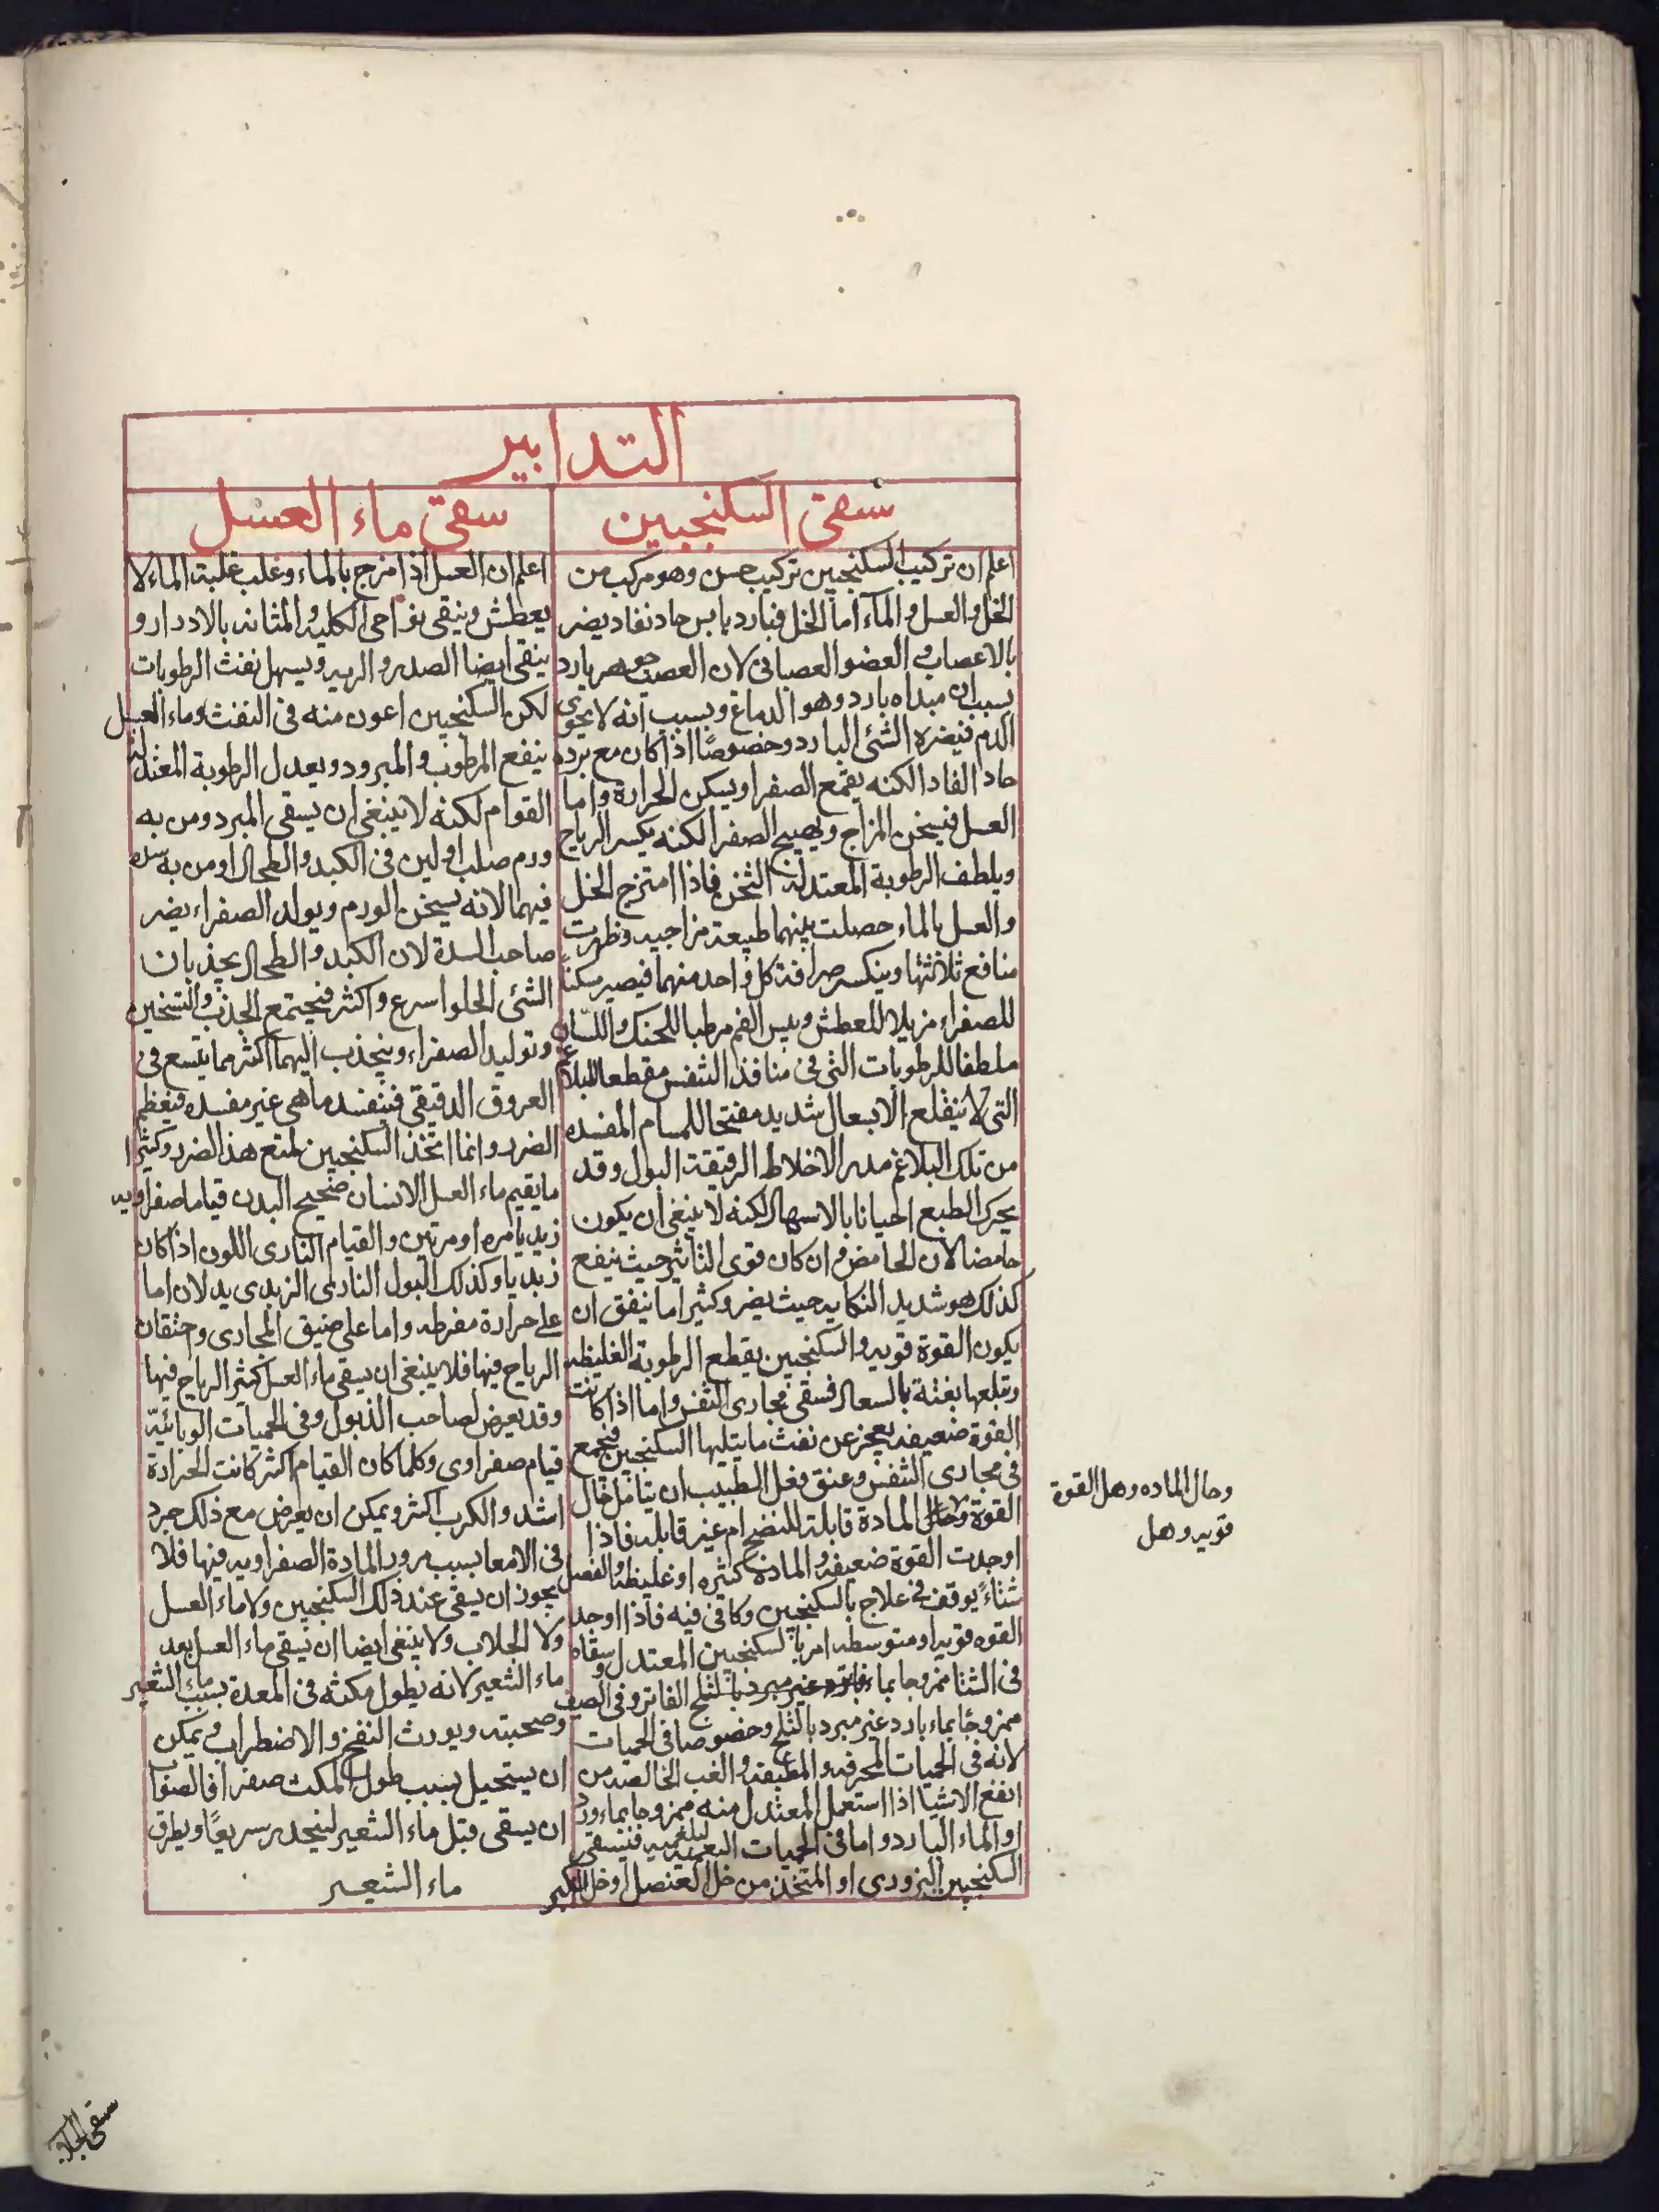 التدابير
سقى السكنجبين
اعلم ان تركيب السكنجبين تركيب حسن وهو مركب من
الخل والعسل والمآء اما الخل فبارد يابس حاد نفاد يضر
بالاعصاب والعضو العصبانى لان العصب جوهر بارد
بسبب ان مبداه بارد وهو الدماغ وبسبب انه لا يحوى
الدم فيضره الشئ البارد وخصوصًا اذا كان مع برده
حاد الفاد الكنه يقمع الصفرا ويسكن الحرارة واما
العسل فيسخن المزاج ويهيج الصفرا لكنه يكسر الرياح
ويلطف الرطوبة المعتدلة الثخن فاذا امتزج الخل
والعسل بالماء حصلت بينهما طبيعة مزاجيه وظهرت
منافع ثلاثتها وينكسر صرافة كل واحد منهما فيصير مسكنًا
للصفراء مزيلا للعطش ويبس الفم مرطبا للحنك واللسان
ملطفا للرطوبات التى فى منافذ التنفس مقطعا للبلاغم
التى لا ينقلع الا بسعال شديد مفتحا للمسام المفسده
من تلك البلاغم مدر الاخلاط الرقيقة البول وقد
يحرك الطبع احيانا بالاسهال لكنه لا ينبغى ان يكون
حامضا لان الحامض وان كان قوى التاثير حيث ينفع
كذلك هو شديد النكايه حيث يضر وكثيرا ما يتفق ان
يكون القوة قويه والسكنجبين يقطع الرطوبة الغليظه
وتقلعها بغتة بالسعال فسقى مجارى التفس واما اذا كانت
القوة ضعيفه يعجز عن نفث ما يتليها السكنجبين فيجمع
فى مجارى التنفس وعنق فعل الطبيب ان يتامل حال
القوة وحال المادة قابلة للنضج ام غير قابله فاذا
اوجدت القوة ضعيفه والمادة كثيره او غليظه والفصل
شتاءً يوقف فى علاج بالسكنجبين وكافى فيه فاذا اوجد
القوه قويه او متوسطه امر بالسكنجبين المعتدل وسقاه
فى الشتا ممزوجا بماء فاتر غير مبرد بالثلج الفاتر وفى الصيف
ممزوجًا بماء بارد غير مبرد بالثلج وخصوصا فى الحميات
لانه فى الحميات المحرقه والمطبقه والغب الخالصه من
انفع الاشيا اذا استعمل المعتدل منه ممزوجا بماء ورد
او الماء البارد واما فى الحميات البلغميه فيسقى
السكنجبين البزورى او المتخذ من خل العنصل او خل الكبر
سقى ماء العسل
اعلم ان العسل اذا مزج بالماء وغلب غلبة الماء لا
يعطش وينقى نواحى الكليه والمثانه بالادرار و
ينقى ايضا الصدر والريه ويسهل نفث الرطوبات
لكن السكنجبين اعون منه فى النفث وماء العسل
ينفع المرطوب والمبرود ويعدل الرطوبة المعتدلة
القوام لكنه لا ينبغى ان يسقى المبرد ومن به
ورم صلب او لين فى الكبد والطحال او من به سده
فيهما لانه يسخن الورم ويولد الصفراء يضر
صاحب السدة لان الكبد والطحال يجذبان
الشئ الحلو اسرع واكثر فيجتمع الجذب والتسخين
وتوليد الصفراء وينجذب اليهما اكثر مما يتسع فى
العروق الدقيقى فيتفسد ما هى غير مفسده فيعظم
الضرر وانما اتخذ السكنجبين لمتع هذ الضرر وكثيرا
ما يقيم ماء العسل الانسان صحيح البدن قياما صفراويه
زبديا مره او مرتين والقيام النارى اللون اذا كان
زبديا وكذلك البول النارى الزبدى يدلان اما
على حرارة مفرطه واما على ضيق المجارى واحتقان
الرياح فيها فلا ينبغى ان يسقى ماء العسل كثير الرياح فيها
وقد يعرض لصاحب الذبول وفى الحميات الوبائيّة
قيام صفراوى وكلما كان القيام اكثر كانت الحرارة
اشد والكرب اكثر ويمكن ان يعرض مع ذلك جرد
فى الامعا بسبب مرور المادة الصفراويه فيها فلا
يجوز ان يسقى عند ذلك السكنجبين ولا ماء العسل
ولا الجلاب ولا ينبغى ايضا ان يسقى ماء العسل بعد
ماء الشعير لانه يطول مكثه فى المعدة بسبب ماء الشعير
وصحبته ويورث النفخ والاضطراب ويمكن
ان يستحيل بسبب طول المكث صفرا فالصواب
ان يسقى قبل ماء الشعير لينحدر سريعًا ويطرق
ماء الشعير
وحال الماده وهل القوة
قويه وهل
سقى الجلاب